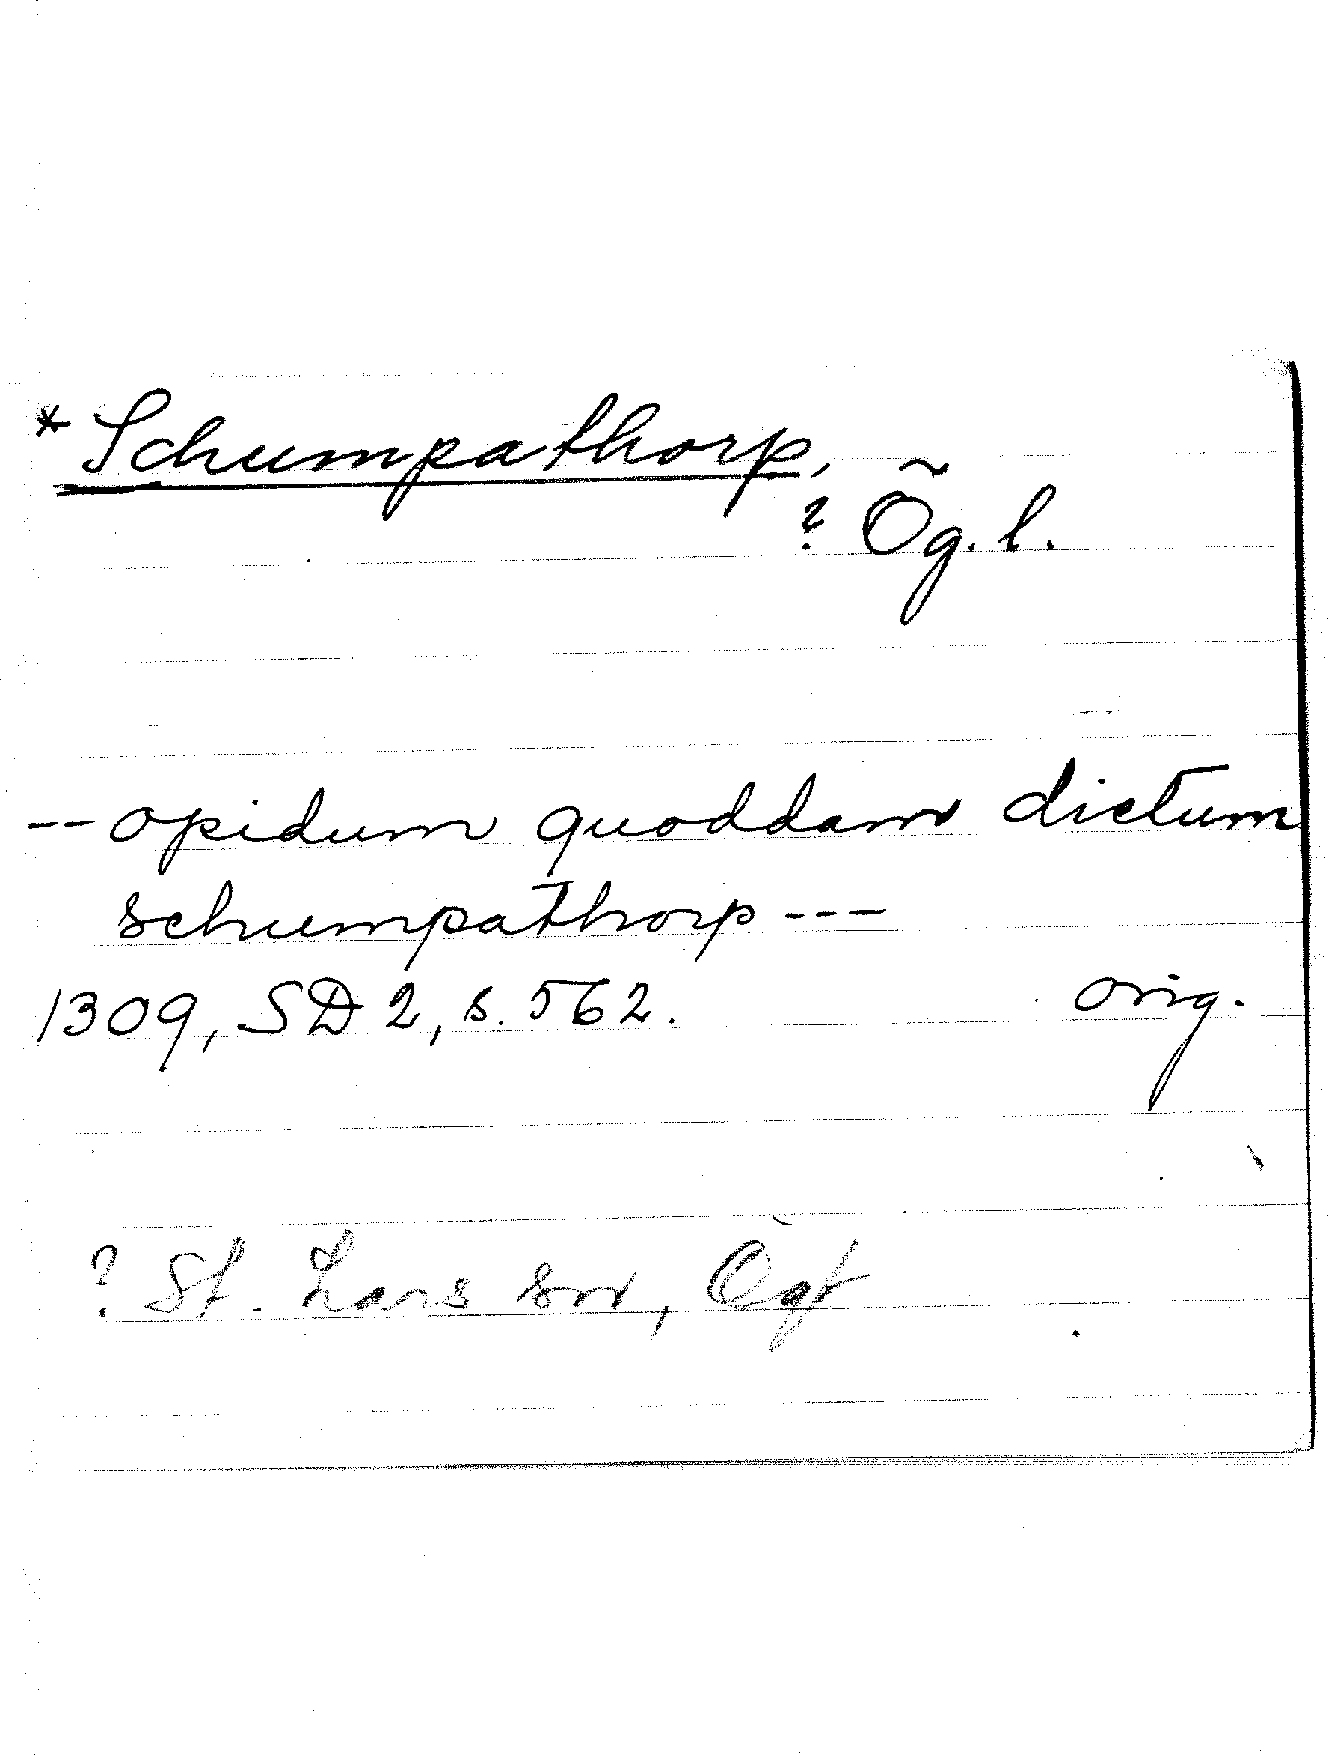 * Schumpathorp,
? Ög. l.
-- opidum quoddam dictum
schumpathorp ---
1309, SD 2, s. 562. orig.
? St. Lars sn, Ögt